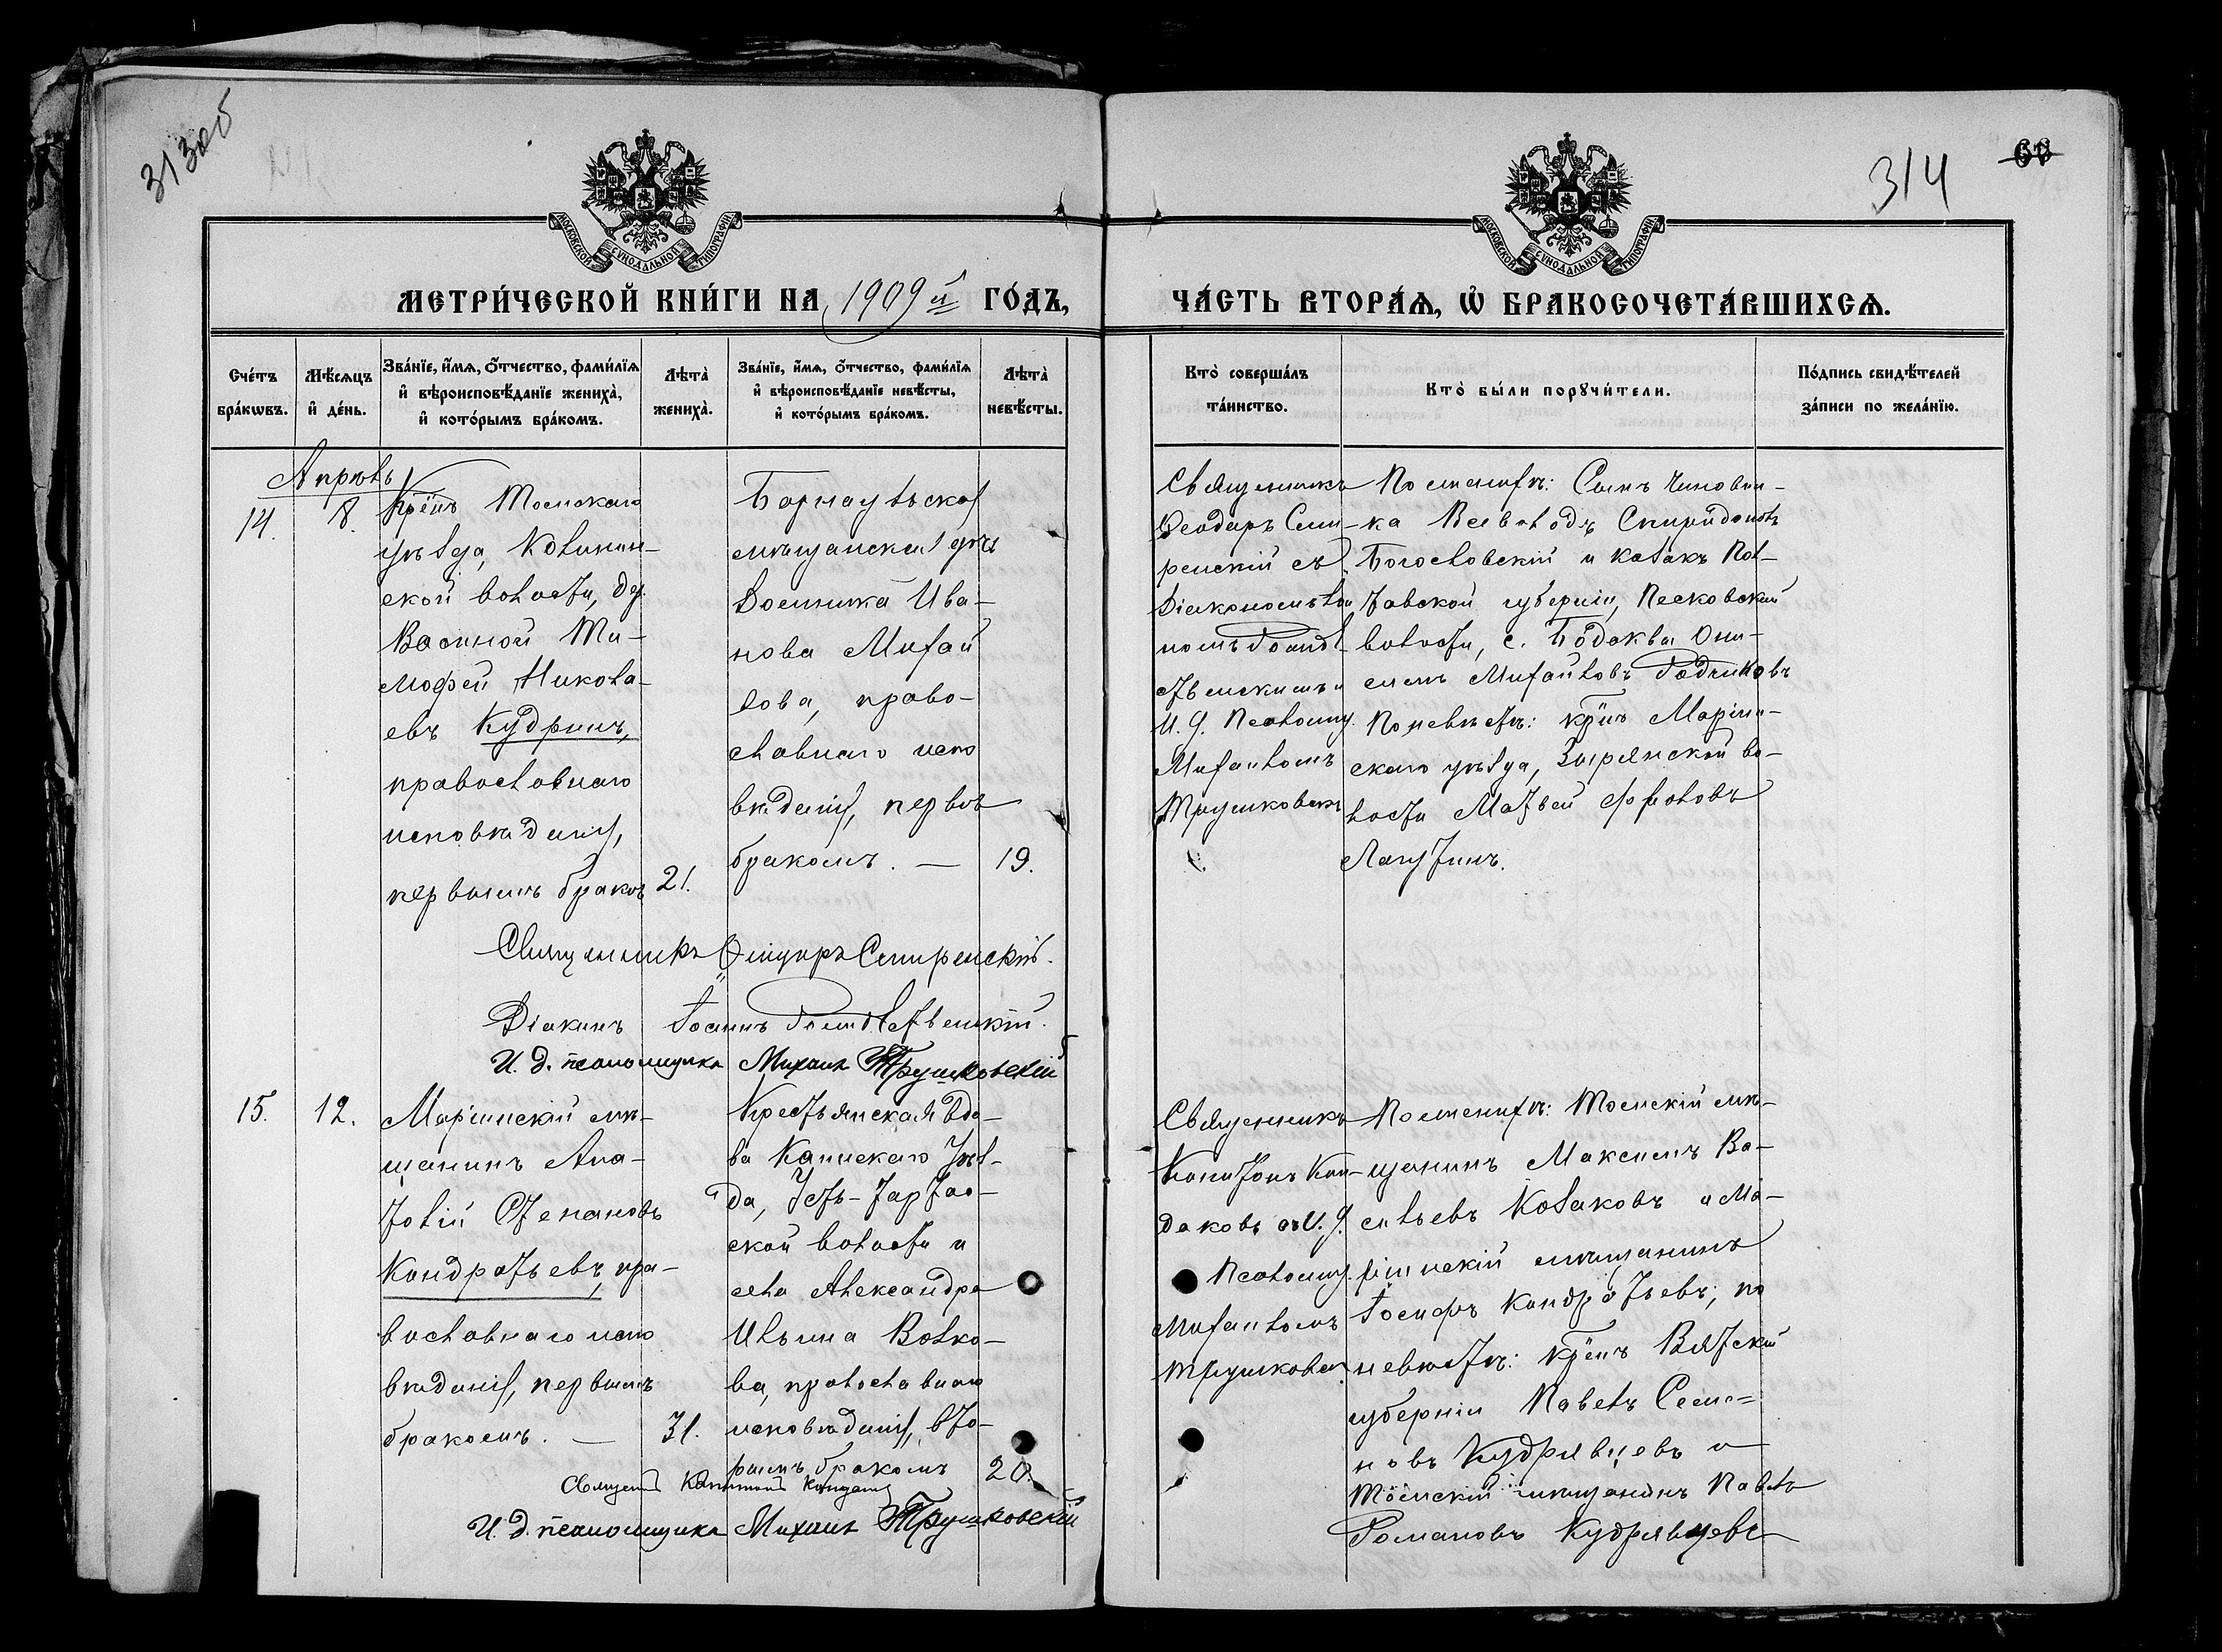 313 об
314
МОСКОВСКОЙ СУНОДАЛЬНОЙ ТИПОГРАФІИ
МЕТРИ́ЧЕСКОЙ КНИ́ГИ НА 1909й ГО́ДЪ,
Сче́тъ бра́кѡвъ.
Мѣ́сѧцъ и҆ де́нь.
Зва́нїе, и҆́мѧ, ѻ҆́тчество, фами́лїѧ
и҆ вѣроисповѣ́данїе жениха̀,
и҆ кото́рымъ бра́комъ.
Лѣта̀ жениха̀.
Зва́нїе, и҆́мѧ, ѻ҆́тчество, фами́лїѧ
и҆ вѣроисповѣ́данїе невѣ́сты,
и҆ кото́рымъ бра́комъ.
Лѣта̀ невѣ́сты.
Апрѣль
14.
8.
Крⷭ҇нъ Томскаго
уѣзда,
ской волости, дер.
Ти-
мофей Никола-
евъ Кудринъ,
православнаго
исповѣданія,
первымъ бракомъ
21.
Барнаульская
мѣщанская дочь
Домника Ива-
нова Михай
лова, право-
славнаго испо
вѣданія, первымъ
бракомъ. —
19.
Священникъ Ѳеодоръ Смиренскій.
Діаконъ Іоаннъ Рождественскій.
И. д. псаломщика Михаилъ Трушковскій
15.
12.
Маріинскій мѣ-
щанинъ Ана-
толій Степановъ
Кондратьевъ, пра-
вославнаго испо
вѣданія, первымъ
бракомъ. —
31.
Крестьянская вдо-
ва Каинскаго Уѣз-
да, Усть-Тартас-
ской волости и
села Александра
Ильина Волко-
ва, православнаго
исповѣданія, вто-
рымъ бракомъ
20.
И. д. псаломщика Михаилъ Трушковскій
МОСКОВСКОЙ СУНОДАЛЬНОЙ ТИПОГРАФІИ
ЧА́СТЬ ВТОРА́Ѧ, Ѡ҆ БРАКОСОЧЕТА́ВШИХСѦ.
Кто̀ соверша́лъ
та́инство.
Кто̀ бы́ли порꙋчи́тели.
По́дпись свидѣ́телей
за́писи по жела́нїю.
Священникъ
Ѳеодоръ Сми-
ренскій съ
Діакономъ Іоан
номъ Рожде-
ственскимъ и
И. д. Псаломщ.
Михаиломъ
Трушковскимъ
По женихѣ: Сынъ чинов-
ника Всеволодъ Спиридоновъ
Богословскій и казакъ Пол-
тавской губерніи, Песковской
волости, с. Бодаква Они-
симъ Михайловъ Родниковъ
По невѣстѣ: крⷭ҇нъ Маріин-
скаго уѣзда, Зырянской во-
лости Матвей
Лагутинъ.
Священникъ
Капитонъ Кан-
даковъ съ И. д.
Псаломщ.
Михаиломъ
Трушковск.
По женихѣ: Томскій мѣ-
щанинъ Максимъ Ва-
сильевъ Козаковъ и Ма-
ріинскій мѣщанинъ
Іосифъ Кондратьевъ; по
невѣстѣ: крⷭ҇нъ Вятской
губерніи Павелъ Семе-
новъ Кудрявцевъ и
Томскій мѣщанинъ Павелъ
Романовъ Кудрявцевъ